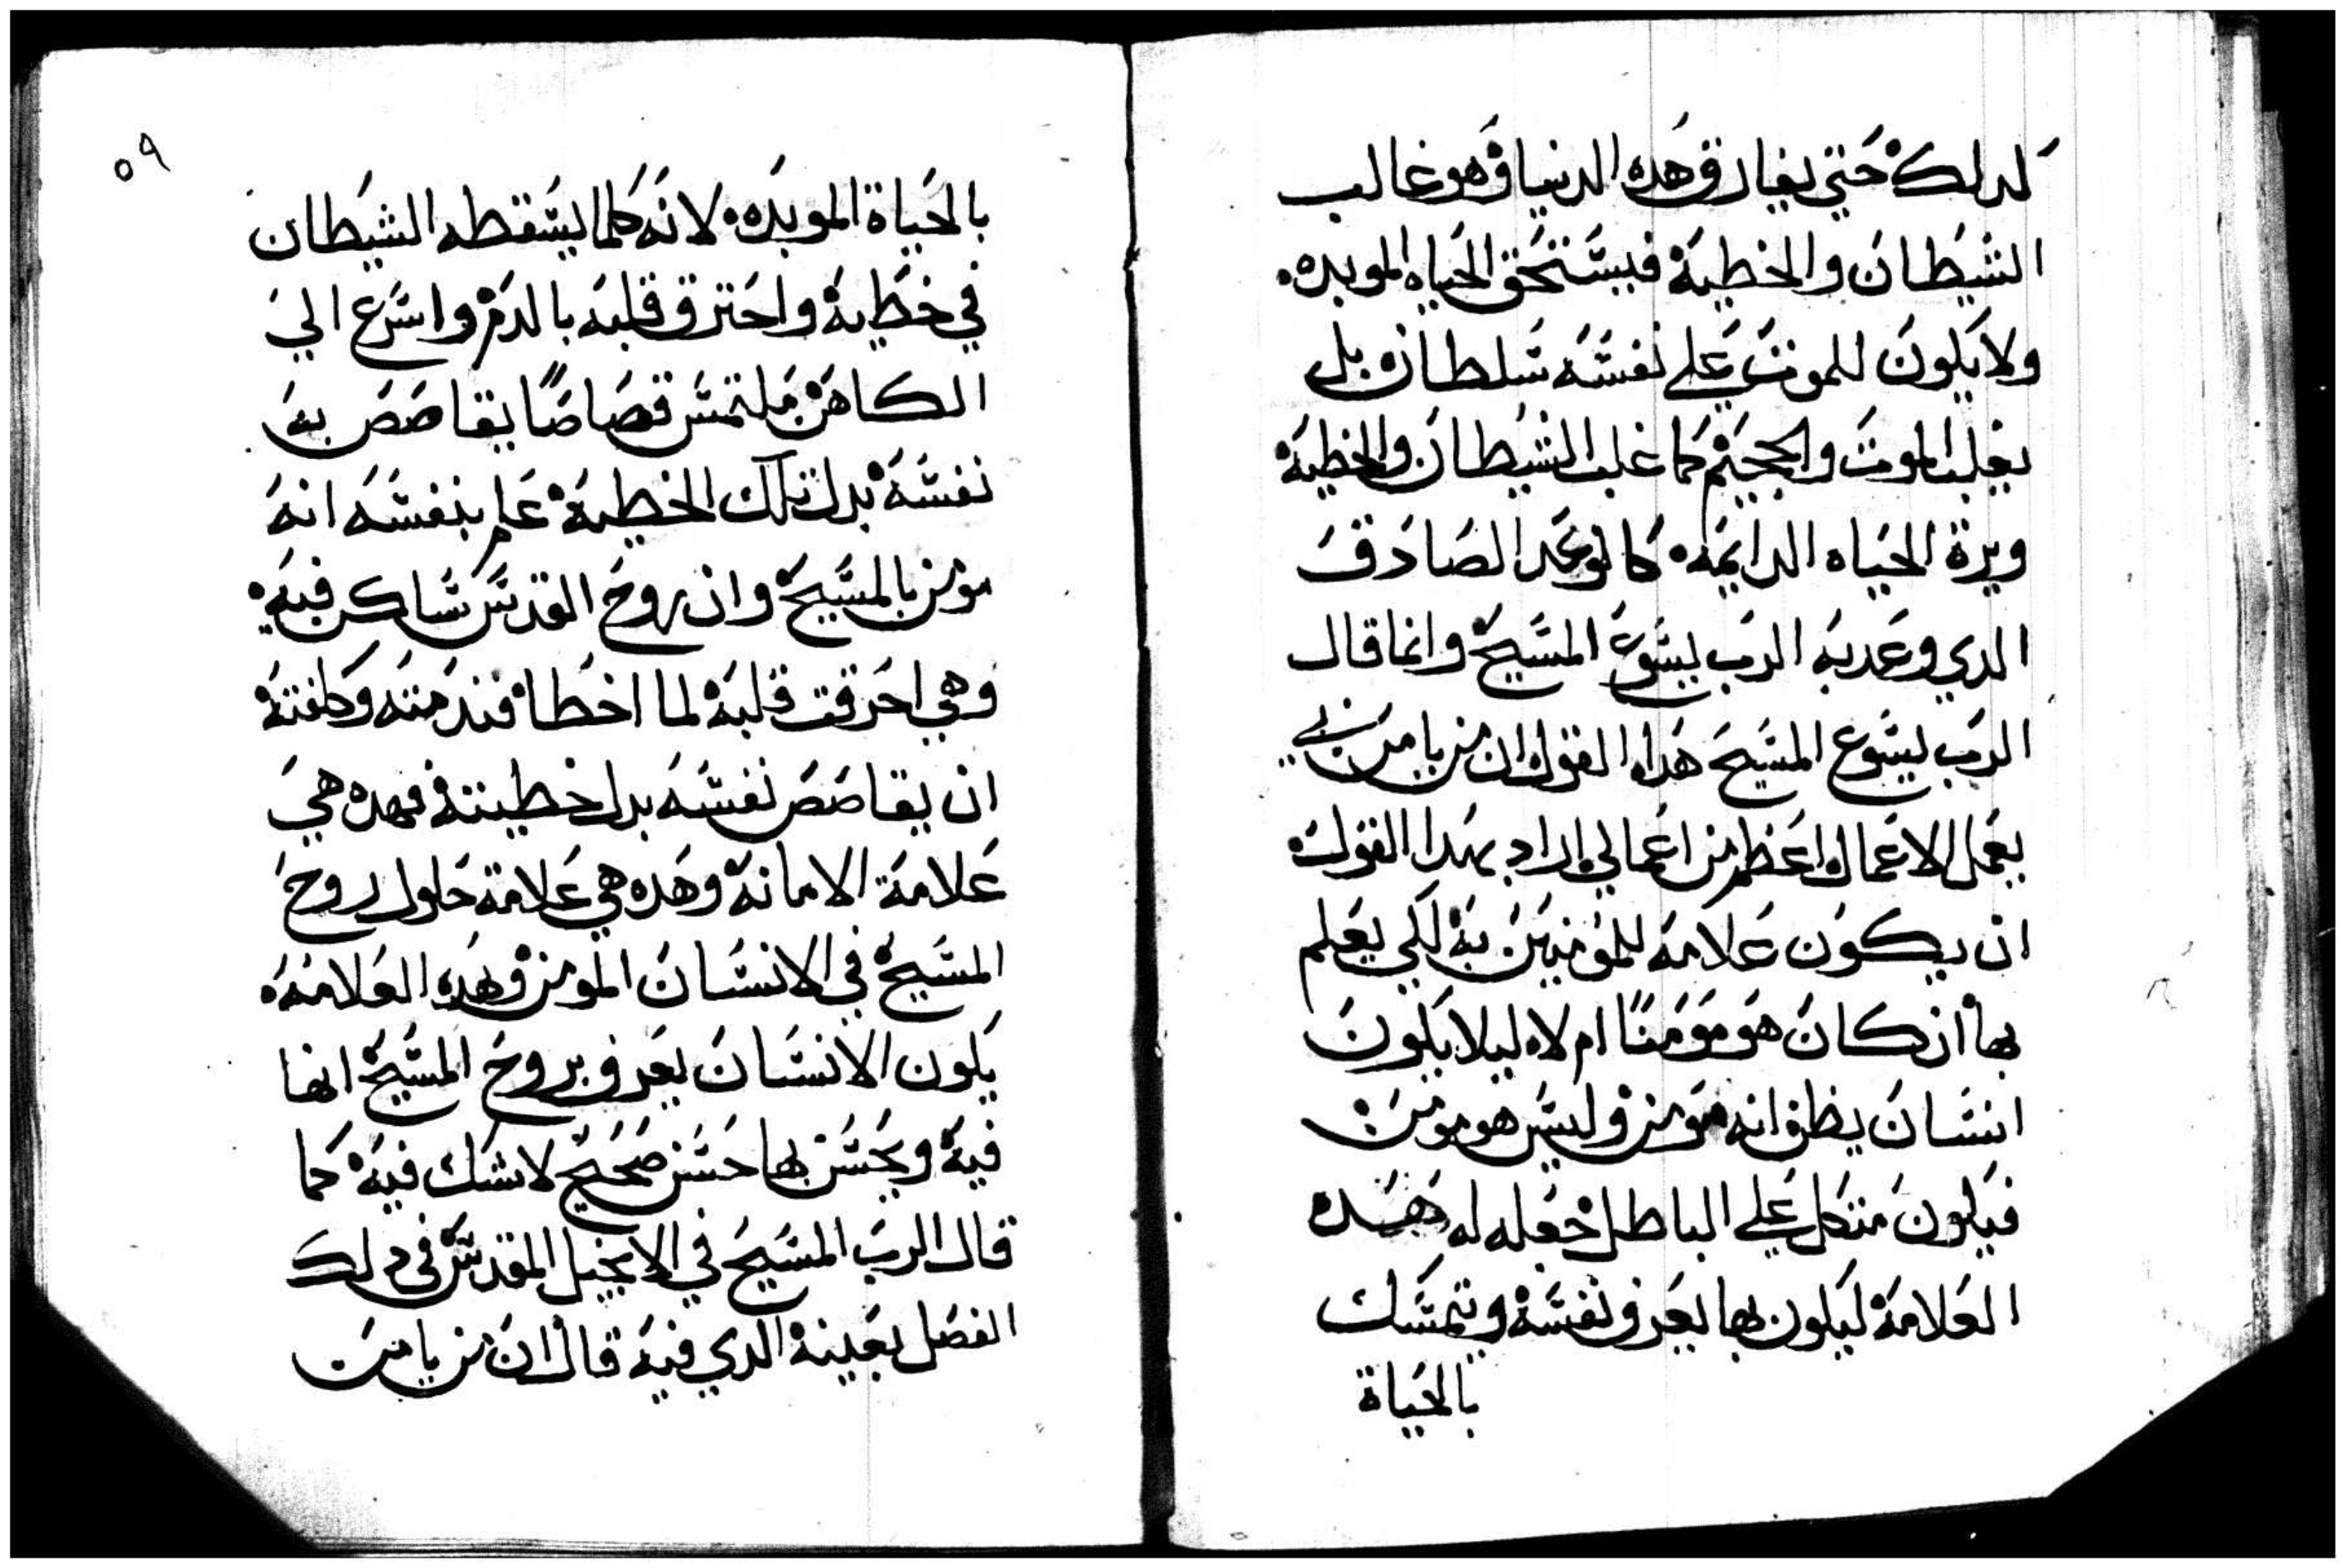 كدلك حتي يفارق هده الدنيا وهو غالب
الشيطان والخطية فيستحق الحياه الموبده
ولا يكون للموت علي نفسه سلطان بل
يغلب الموت والجحيم كما غلب الشيطان والخطية
ويرة الحياه الدايمه كالوعد الصادق
الدي وعد به الرب يسوع المسيح وانما قال
الرب يسوع المسيح هدا القول ان من يامن بي
يعمل الاعمال واعظم من اعمالي اراد بهدا القول
ان يكون علامه للمومنين به لكي يعلم
بها ان كان هو مومنًا ام لا ليلا يكون
انسان يظن انه مومن وليس هو مومن
فيكون متكل علي الباطل جعله له هده
العلامة ليكون بها يعرف نفسه ويتمسك
بالحياة
٥٩
بالحياة الموبده لانه كلما يسقطه الشيطان
في خطية واحترق قلبه بالدم واسرع الي
الكاهن ملتمس قصاصًا يقاصص به
نفسه بدل تلك الخطية علم بنفسه انه
مومن بالمسيح وان روح القدس ساكن فيه
وهي احرقت قلبه لما اخطا فندمته وكلفته
ان يقاصص نفسه بدل خطيته فهده هي
علامة الامانة وهده هي علامة حلول روح
المسيح في الانسان المومن وهده العلامه
يكون الانسان يعرف بروح المسيح انها
فيه ويحس بها حس صحيح لا شك فيه كما
قال الرب المسيح في الانجيل المقدس في دلك
الفصل بعينة الدي فيه قال ان من يامن